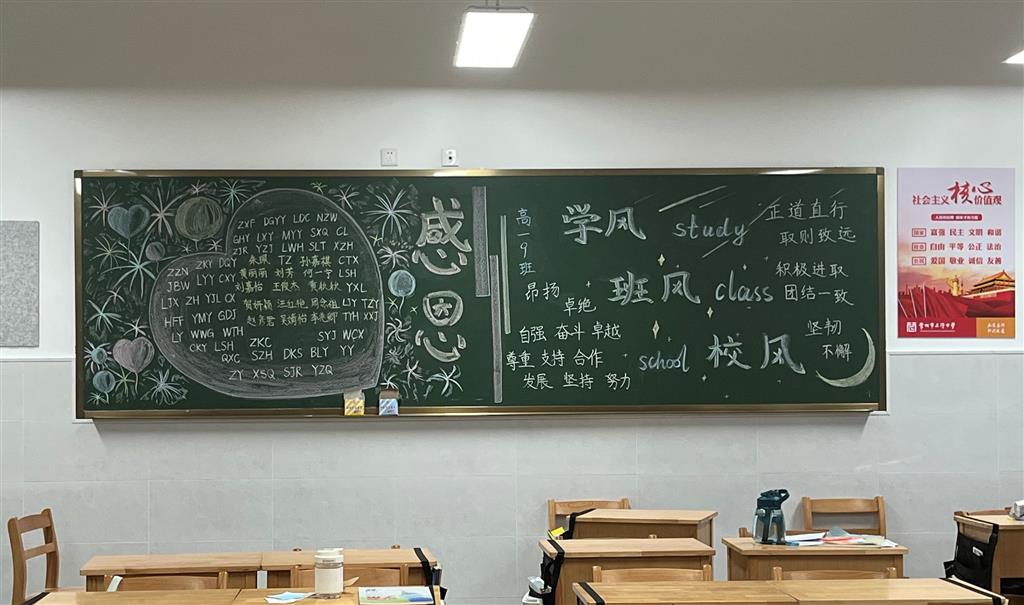 ZXF DGYY LDC NZW
GHY LXY MYY SXQ CL
ZJR YZJ LWH SLT XZH
ZKY DQY 秦珮 TZ 孙嘉祺 CTX
ZZN 黄丽丽 刘芳 何一宁 LSH
JBW LYY CXY 刘嘉怡 王殿杰 黄秋秋 YXL
LJX ZH YJL CX LJY TZY
HFF YMY GDJ TYH XXJ
LY WWG WTH ZKC SYJ WCX
CKY LSH
QXC SZH DKS BLY YY
ZY XSQ SJR YZQ
感恩心
高一9班
学风 study 正道直行
取则致远
班风 class 积极进取
团结一致
school 校风 坚韧
不懈
昂扬
卓绝
自强 奋斗 卓越
尊重 支持 合作
发展 坚持 努力
社会主义核心价值观
国家 富强 民主 文明 和谐
社会 自由 平等 公正 法治
公民 爱国 敬业 诚信 友善